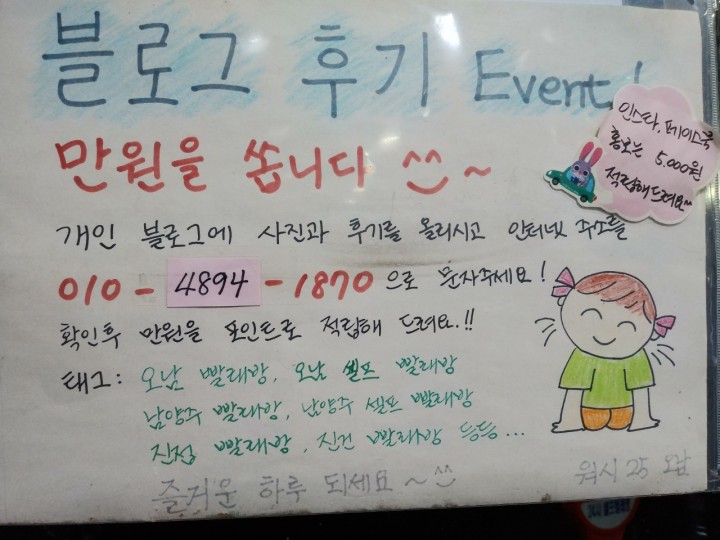 블로그 후기 Event!
만원을 쏩니다 ^^ ~
인스타, 페이스북
홍보는 5,000원
적립해드려요^^
개인 블로그에 사진과 후기를 올리시고 인터넷 주소를
010-4894-1870으로 문자주세요!
확인후 만원을 포인트로 적립해 드려요.!!
태그: 오남 빨래방, 오남 셀프 빨래방
남양주 빨래방, 남양주 셀프 빨래방
진접 빨래방, 진건 빨래방 등등...
즐거운 하루 되세요~^^
워시25 오남